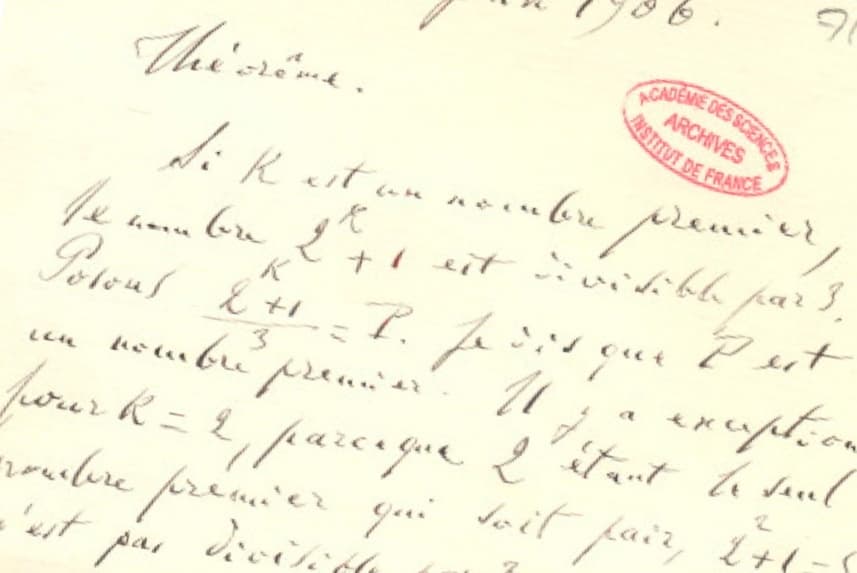 1906.
Théorême.
ACADÉMIE DES SCIENCES
ARCHIVES
INSTITUT DE FRANCE
Si K est un nombre premier,
le nombre 2^K + 1 est divisible par 3.
Posons (2^K+1)/3 = P. Je dis que P est
un nombre premier. Il y a exception
pour K = 2, parceque 2 étant le seul
nombre premier qui soit pair, 2^2+1=5
n'est pas divisible par 3